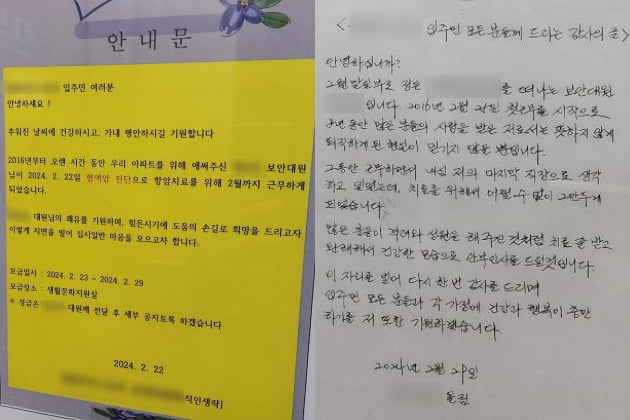 안내문
입주민 여러분
안녕하세요 !
추워진 날씨에 건강하시고, 가내 평안하시길 기원합니다
2016년부터 오랜 시간 동안 우리 아파트를 위해 애써주신 보안대원
님이 2024. 2. 22일 혈액암 진단으로 항암치료를 위해 2월까지 근무하게
되었습니다.
대원님의 쾌유를 기원하며, 힘든시기에 도움의 손길로 희망을 드리고자
이렇게 지면을 빌어 십시일반 마음을 모으고자 합니다.
모금일시 : 2024. 2. 23 ~ 2024. 2. 29
모금장소 : 생활문화지원실
* 성금은 대원께 전달 후 세부 공지토록 하겠습니다
2024. 2. 22
직인생략]
< 입주민 모든 분들께 드리는 감사의 글>
안녕하십니까?
2월 말일부로 정든 를 떠나는 보안대원
입니다. 2016년 2월 25일 첫근무를 시작으로
8년 동안 많은 분들의 사랑을 받은 저로서는 뜻하지 않게
퇴직하게 된 현실이 믿기지 않을 뿐입니다.
그동안 근무하면서 내심 저의 마지막 직장으로 생각
하고 있었는데, 치료를 위해서 어쩔 수 없이 그만두게
되었습니다.
많은 분들이 격려와 성원을 해 주신 것처럼 치료 잘 받고
완쾌해서 건강한 모습으로 안부인사를 드릴것입니다.
이 자리를 빌어 다시 한 번 감사를 드리며
입주민 모든 분들과 각 가정에 건강과 행복이 충만
하기를 저 또한 기원하겠습니다.
2024년 2월 29일
올림